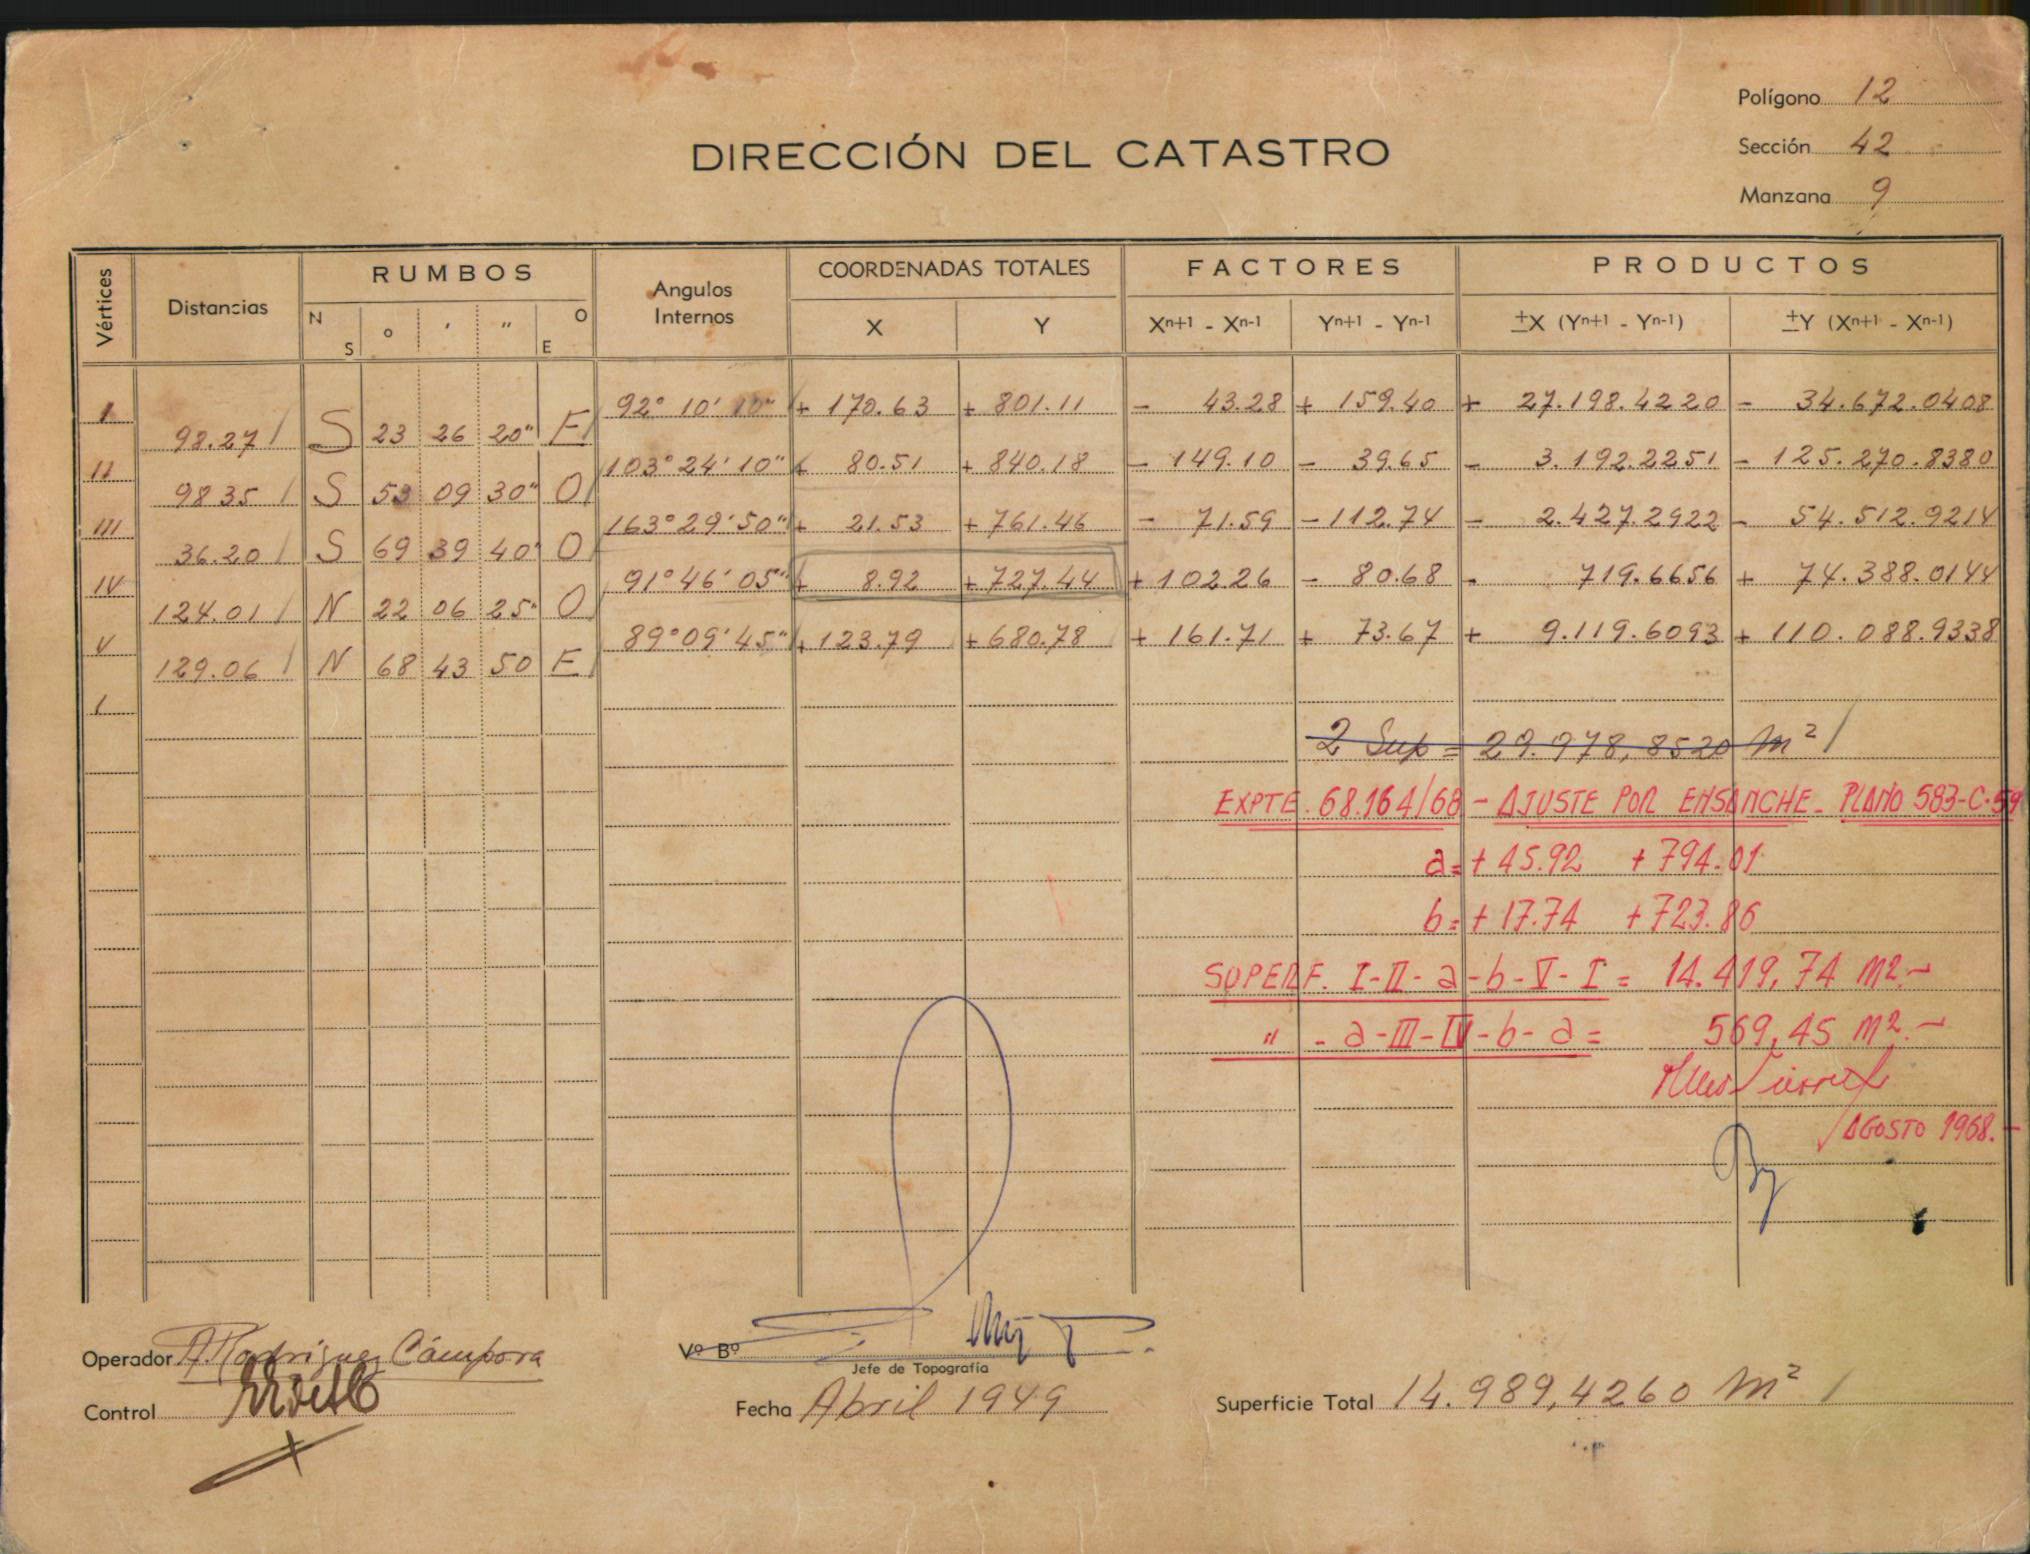 Polígono 12
Sección 42
Manzana 9
DIRECCIÓN DEL CATASTRO
Vértices Distancias RUMBOS Angulos Internos COORDENADAS TOTALES FACTORES PRODUCTOS
N S ° ' " O E X Y Xⁿ⁺¹ - Xⁿ⁻¹ Yⁿ⁺¹ - Yⁿ⁻¹ ±X (Yⁿ⁺¹ - Yⁿ⁻¹) ±Y (Xⁿ⁺¹ - Xⁿ⁻¹)
I 92° 10' 10" + 170.63 + 801.11 - 43.28 + 159.40 + 27.198.4220 - 34.672.0408
98.27 / S 23 26 20" E /
II 103° 24' 10" + 80.51 + 840.18 - 149.10 - 39.65 - 3.192.2251 - 125.270.8380
98.35 / S 53 09 30" O /
III 163° 29' 50" + 21.53 + 761.46 - 71.59 - 112.74 - 2.427.2922 - 54.512.9214
36.20 / S 69 39 40" O
IV 91° 46' 05" + 8.92 + 727.44 + 102.26 - 80.68 - 719.6656 + 74.388.0144
124.01 / N 22 06 25" O
V 89° 09' 45" + 123.79 + 680.78 + 161.71 + 73.67 + 9.119.6093 + 110.088.9338
129.06 / N 68 43 50 E /
I
2 Sup = 29.978,8520 m² /
EXPTE. 68.164/68 - AJUSTE POR ENSANCHE - PLANO 583-C-59
a = + 45.92 + 794.01
b = + 17.74 + 723.86
SUPERF. I-II-a-b-V-I = 14.419,74 m2.-
" - a-III-IV-b-a = 569,45 m2.-
AGOSTO 1968.-
Operador A. Rodriguez Cámpora
Vº Bº
Jefe de Topografía
Control
Fecha Abril 1949
Superficie Total 14.989,4260 m² /